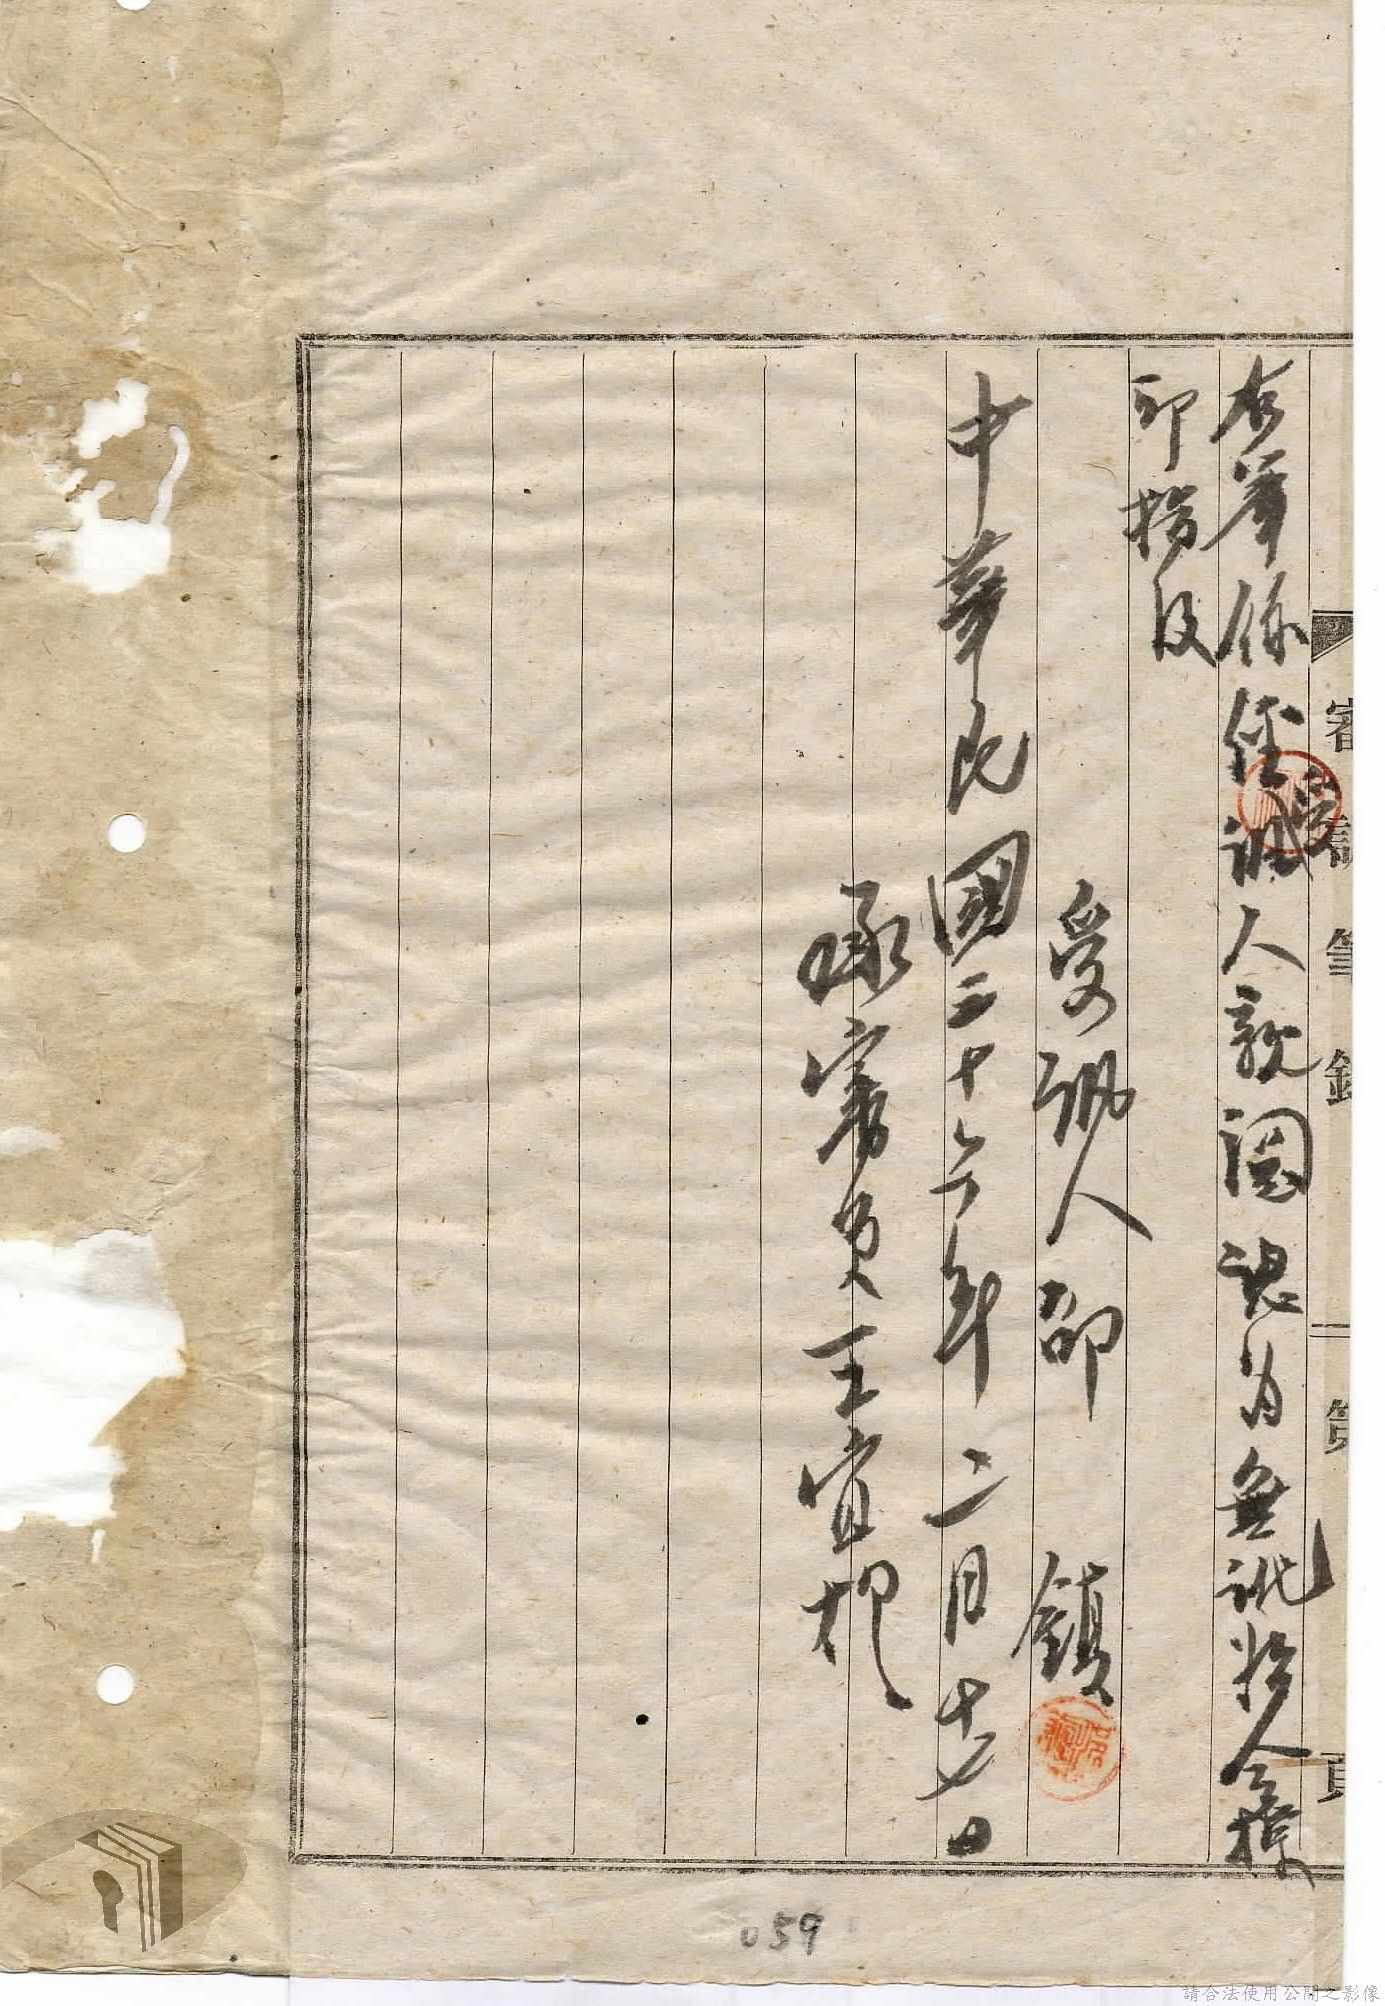 審訊筆錄 第 頁
右筆係經受訊人親閱認為無訛指令捺
印指後
受訊人 邵 鎮
中華民國三十六年二月十七日
承審員王宜
059
請合法使用公開之影像